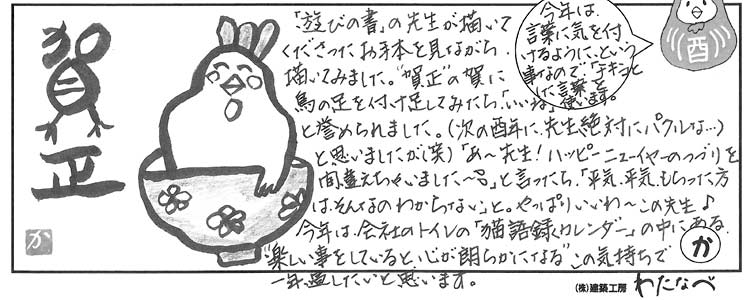 賀正
か
「遊びの書」の先生が描いて
くださったお手本を見ながら、
描いてみました。"賀正"の賀に
鳥の足を付け足してみたら、「いいね」
と誉められました。(次の酉年に、先生絶対にパクルな…)
と思いましたが(笑)「あ〜先生!ハッピーニューイヤーのつづりを
間違えちゃいました〜」と言ったら、「平気、平気、もらった方
は、そんなのわからない」と。やっぱりいいわ〜この先生♪
今年は、会社のトイレの「猫語録カレンダー」の中にある
"楽しい事をしていると、心が朗らかになる"この気持ちで
一年過したいと思います。
今年は、
言葉に気を付
けるように、という
事なので、「テキコと
した言葉」を
使います。
酉
か
(株)建築工房 わたなべ